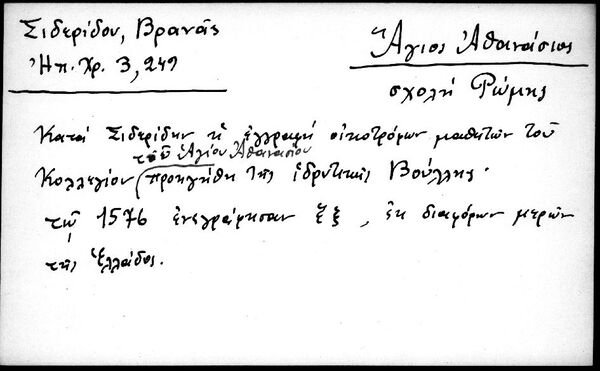 Σιδερίδου, Βρανᾶς
Ἠπ. Χρ. 3, 249
Ἅγιος Ἀθανάσιος
σχολή Ρώμης
Κατά Σιδερίδην ἡ ἐγγραφή οἰκοτρόφων μαθητῶν τοῦ
τοῦ Ἁγίου Ἀθανασίου
Κολλεγίου προηγήθη τῆς ἱδρυτικῆς Βούλλης.
τῷ 1576 ἐνεγράφησαν ἕξ, ἐκ διαφόρων μερῶν
τῆς Ἑλλάδος.